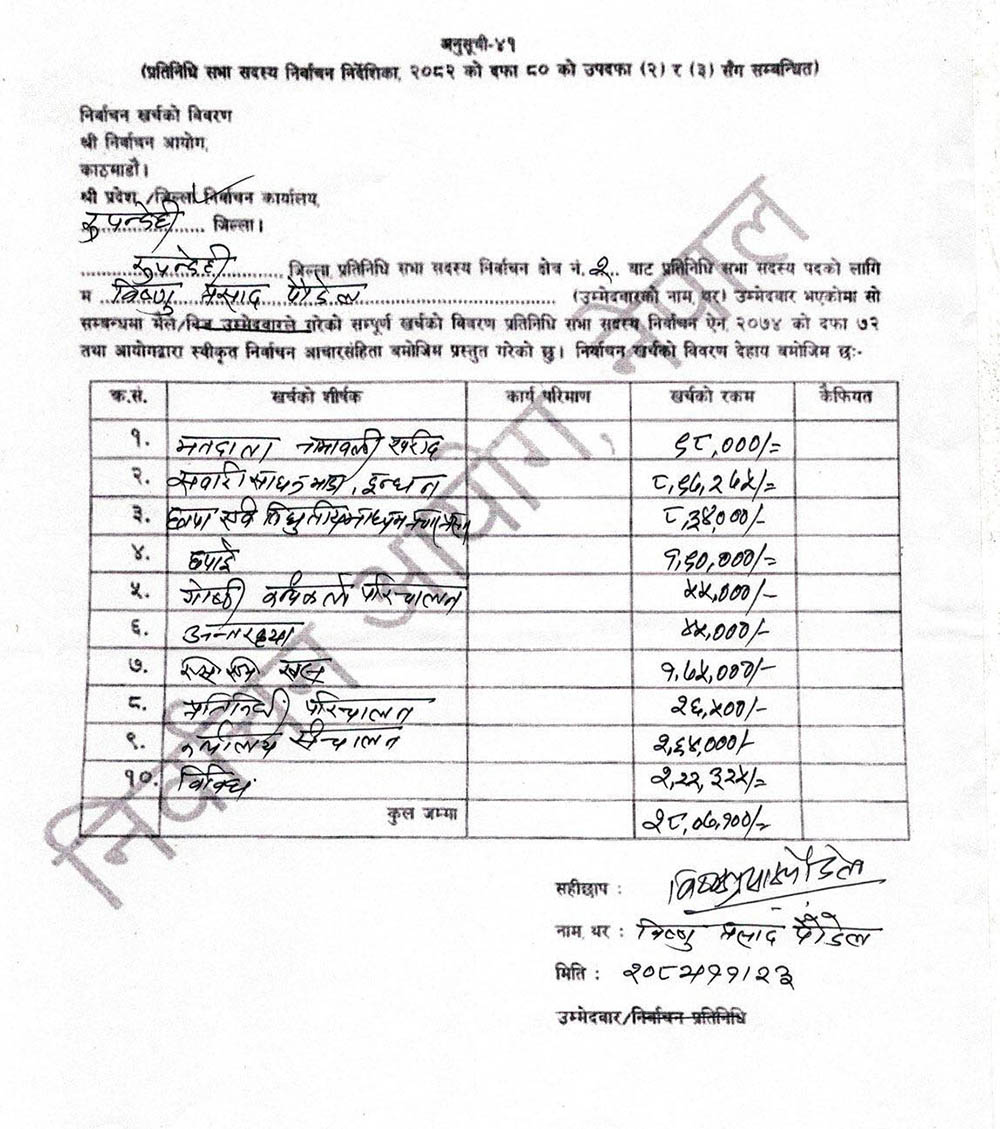 अनुसूची-४१
(प्रतिनिधि सभा सदस्य निर्वाचन निर्देशिका, २०८२ को दफा ८० को उपदफा (२) र (३) सँग सम्बन्धित)
निर्वाचन खर्चको विवरण
श्री निर्वाचन आयोग,
काठमाडौं।
श्री प्रदेश /जिल्ला निर्वाचन कार्यालय,
रुपन्देही जिल्ला।
रुपन्देही जिल्ला, प्रतिनिधि सभा सदस्य निर्वाचन क्षेत्र नं. २ बाट प्रतिनिधि सभा सदस्य पदको लागि
म विष्णु प्रसाद पौडेल (उम्मेदवारको नाम, थर) उम्मेदवार भएकोमा सो
सम्बन्धमा मैले/निज उम्मेदवारले गरेको सम्पूर्ण खर्चको विवरण प्रतिनिधि सभा सदस्य निर्वाचन ऐन, २०७४ को दफा ७२
तथा आयोगद्वारा स्वीकृत निर्वाचन आचारसंहिता बमोजिम प्रस्तुत गरेको छु। निर्वाचन खर्चको विवरण देहाय बमोजिम छः-
क्र.सं. खर्चको शीर्षक कार्य परिमाण खर्चको रकम कैफियत
१. मतदाता नामावली खरीद ६८,०००/=
२. सवारी साधन भाडा, इन्धन ८,६७,२७५/=
३. छापा एवं विधुतीय माध्यम ८,३४०००/-
४. छपाई १,६०,०००/=
५. गोष्ठी परिचालन ५५,०००/-
६. अन्तरक्रिया ४५,०००/-
७. १,७५,०००/-
८. प्रतिनिधि परिचालन २६,५००/-
९. कार्यालय संचालन २,६४,०००/-
१०. विविध २,२२,३२५/=
कुल जम्मा २८,०७,१००/=
सहीछाप : विष्णुप्रसाद पौडेल
नाम, थर : विष्णु प्रसाद पौडेल
मिति : २०८२।११।२३
उम्मेदवार/निर्वाचन प्रतिनिधि
निर्वाचन आयोग, नेपाल